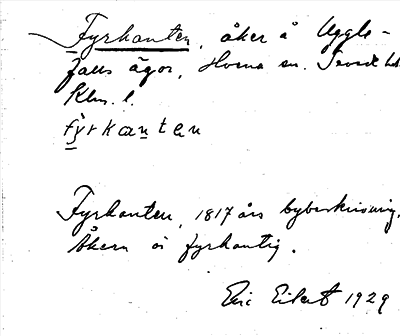 Fyrkanten, åker å Uggle-
falls ägor, Horna sn.
Klm. l.
fyrkanten
Fyrkanten, 1817 års bybeskrivning.
Åkern är fyrkantig.
Eric Eilert 1929